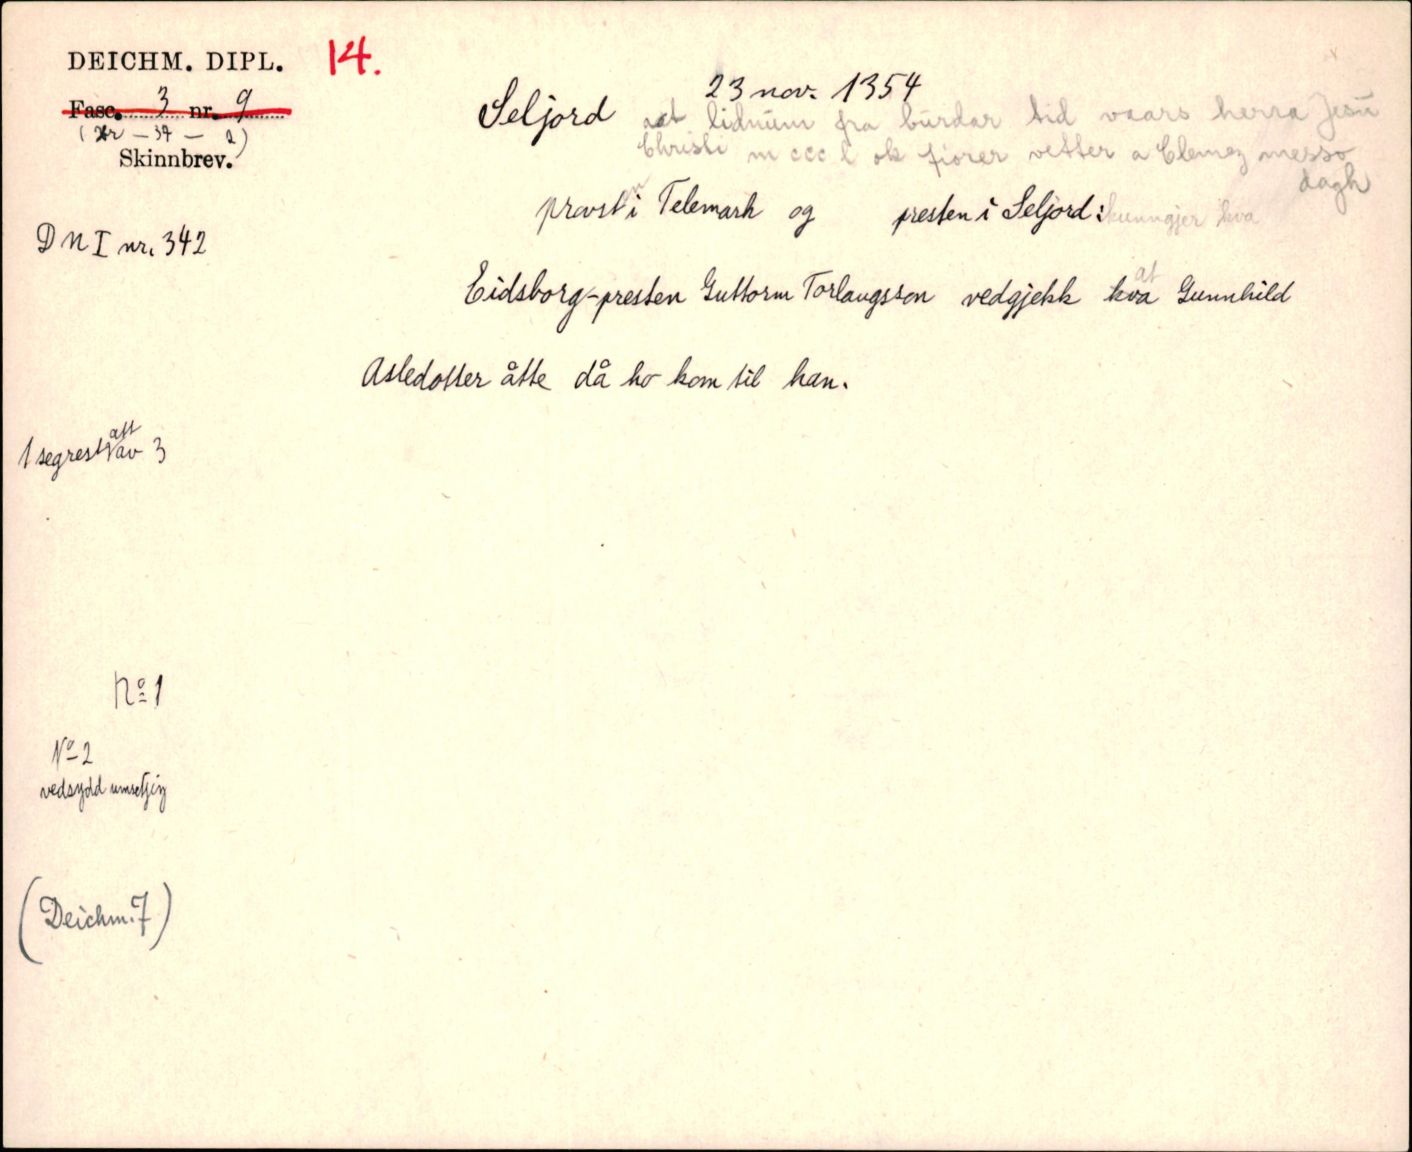 DEICHM. DIPL. 14.
Fasc. 3 nr. 9
( - 34 - 2)
Skinnbrev.
Seljord 23 nov. 1354
aat lidnum fra burdar tid vaars herra Jesu
Christi m ccc l ok fiorer vetter a Clemez messo
dagh
DN I nr. 342
provsten i Telemark og presten i Seljord: kunngjer kva
Eidsborg-presten Guttorm Torlaugsson vedgjekk kva at Gunnhild
Asledotter åtte då ho kom til han.
1 segrest att av 3
No 1
No 2
vedsydd umsetjing
(Deichm. 7)